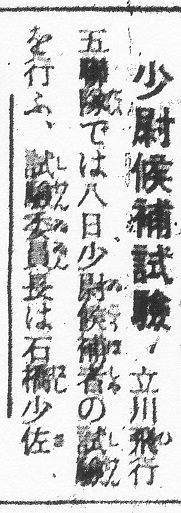 少尉候補試驗 立川飛行
五聯隊では八日少尉候補者の試驗
を行ふ、試驗委員長は石橋少佐